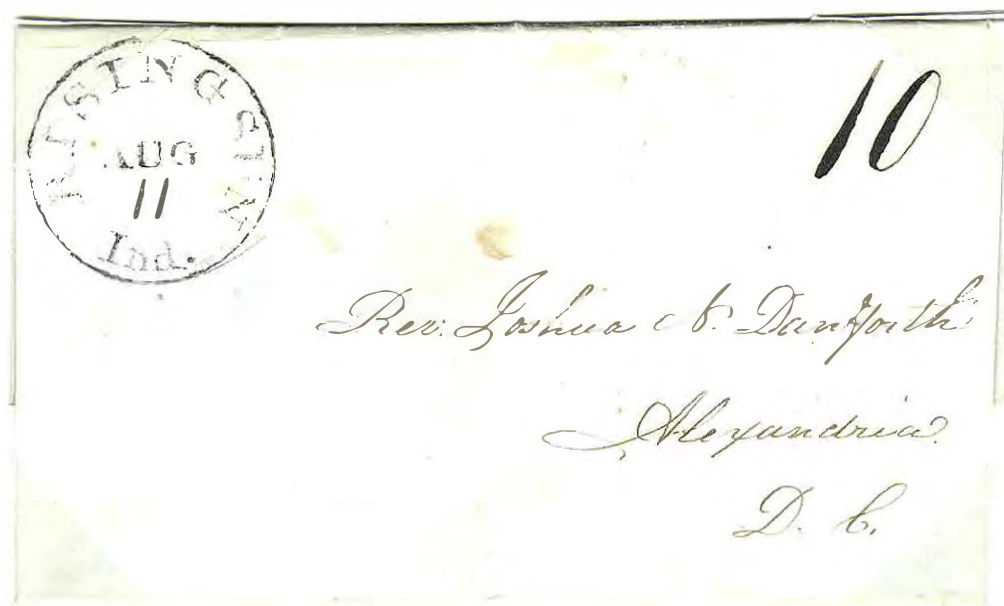 RISINGSUN
AUG
11
Ind.
10
Rev: Joshua N. Danforth
Alexandria
D. C.